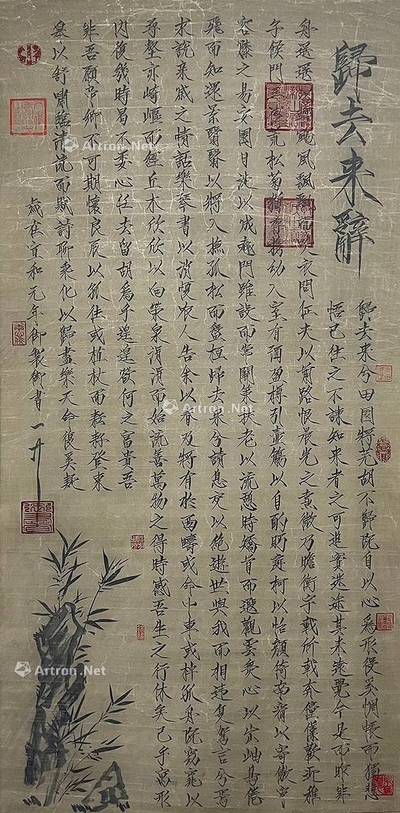 歸去來辭
歸去來兮田園將蕪胡不歸既自以心為形役奚惆悵而獨悲
悟已往之不諫知來者之可追實迷途其未遠覺今是而昨非
舟遙遙 颺風飄飄 吹衣問征夫以前路恨晨光之熹微乃瞻衡宇載欣載奔僮僕歡迎稚
子候門 荒松菊猶存攜幼入室有酒盈樽引壺觴以自酌眄庭柯以怡顏倚南窗以寄傲審
容膝之易安園日涉以成趣門雖設而常關策扶老以流憩時矯首而遐觀雲無心以出岫鳥倦
飛而知還景翳翳以將入撫孤松而盤桓歸去來兮請息交以絕遊世與我而相違復駕言兮焉
求說親戚之情話樂琴書以消憂農人告余以春及將有於西疇或命巾車或棹孤舟既窈窕以
尋壑亦崎嶇而經丘木欣欣以向榮泉涓涓而始流善萬物之得時感吾生之行休矣已乎寓形
內復幾時曷不委心任去留胡為乎遑遑欲何之富貴吾
非吾願帝鄉不可期懷良辰以孤往或植杖而耘耔登東
皋以舒嘯臨清流而賦詩聊乘化以歸盡樂天命復奚疑
歲在宣和元年御製御書
Artron.Net
Artron.Net
Artron.Net
Artron.Net
Artron.Net